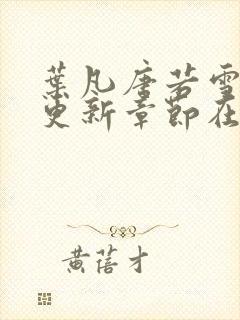 葉凡唐若雪
更新章節在
黃蓓才